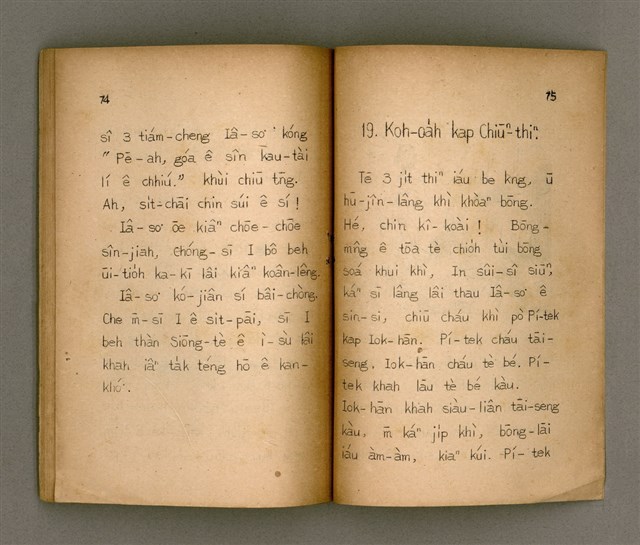 74
sî 3 tiám-cheng Iâ-so͘ kóng
"Pē-ah, góa ê sîn kau-tài
lí ê chhiú." khùi chiū tn̄g.
Ah, sit-chāi chin súi ê sí!
Iâ-so͘ ōe kiâⁿ chōe-chōe
sîn-jiah, Chóng-sī I bô beh
ūi-tio̍h ka-kī lâi kiâⁿ koân-lêng.
Iâ-so͘ kó-jiân sí bâi-chòng.
Che m̄-sī I ê sit-pāi, sī I
beh thàn Siōng-tè ê ì-sù lâi
khah iâⁿ ta̍k téng hō ê kan-
khó͘.
75
19. Koh-oa̍h kap Chiūⁿ-thiⁿ.
Tē 3 ji̍t thiⁿ iáu be kng, ū
hū-jîn-lâng khì khòaⁿ bōng.
Hé, chin kî-koài! Bōng-
mn̂g ê tōa tè chio̍h tùi bōng
soá khui khì, In sûi-sî siūⁿ,
káⁿ sī lâng lâi thau Iâ-so͘ ê
sin-si, chiū cháu khì pò Pí-tek
kap Iok-hān. Pí-tek cháu tāi-
seng, Iok-hān cháu tè bé. Pí-
tek khah lāu tè bé kàu.
Iok-hān khah siàu-liân tāi-seng
kàu, m̄ káⁿ ji̍p khì, bōng-lāi
iáu àm-àm, kiaⁿ kúi. Pí-tek